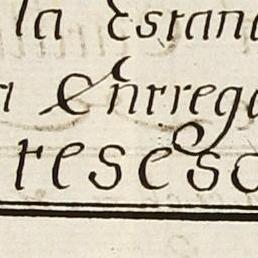 la Estan
a Entrega
reseso